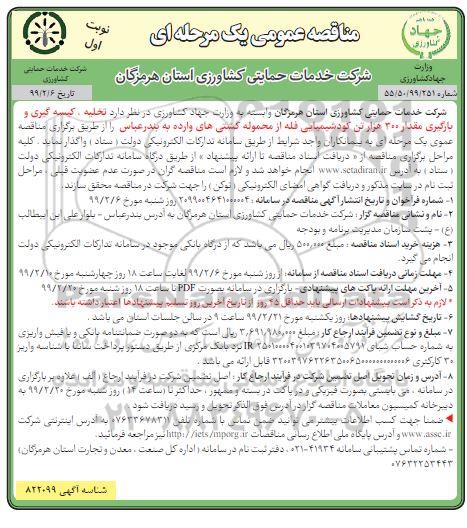 مناقصه عمومی یک مرحله ای
نوبت اول
شرکت خدمات حمایتی کشاورزی استان هرمزگان
جهاد کشاورزی
وزارت جهادکشاورزی
شرکت خدمات حمایتی کشاورزی
شماره ۵۵/۵۰/۹۹/۲۵۱
تاریخ ۹۹/۲/۶
شرکت خدمات حمایتی کشاورزی استان هرمزگان وابسته به وزارت جهاد کشاورزی در نظر دارد تخلیه ، کیسه گیری و
بارگیری مقدار ۳۰۰ هزار تن کودشیمیایی فله از محموله کشتی های وارده به بندرعباس را از طریق برگزاری مناقصه
عمومی یک مرحله ای به پیمانکاران واجد شرایط از طریق سامانه تدارکات الکترونیکی دولت ( ستاد ) واگذار نماید . کلیه
مراحل برگزاری مناقصه از « دریافت اسناد مناقصه تا ارائه پیشنهاد » از طریق درگاه سامانه تدارکات الکترونیکی دولت
( ستاد ) به آدرس www. setadiran.ir انجام خواهد شد و لازم است مناقصه گران در صورت عدم عضویت قبلی ، مراحل
ثبت نام در سایت مذکور و دریافت گواهی امضای الکترونیکی (توکن) را جهت شرکت در مناقصه محقق سازند.
۱- شماره فراخوان و تاریخ انتشار آگهی مناقصه در سامانه : ۲۰۹۹۰۰۴۶۴۱۰۰۰۰۰۴ روز شنبه مورخ ۹۹/۲/۶
۲- نام و نشانی مناقصه گزار: شرکت خدمات حمایتی کشاورزی استان هرمزگان به آدرس بندرعباس - بلوار علی ابن ابیطالب
(ع) - پشت سازمان مدیریت برنامه و بودجه
۳- هزینه خرید اسناد مناقصه : مبلغ ۵۰۰,۰۰۰ ریال می باشد که از درگاه بانکی موجود در سامانه تدارکات الکترونیکی دولت
انجام می گیرد.
۴- مهلت زمانی دریافت اسناد مناقصه از سامانه: از روز شنبه مورخ ۹۹/۲/۶ لغایت ساعت ۱۸ روز چهارشنبه مورخ ۹۹/۲/۱۰
۵- آخرین مهلت ارائه پاکت های پیشنهادی- بارگزاری در سامانه بصورت PDF تا ساعت ۱۸ روز شنبه مورخ ۹۹/۲/۲۰
* لازم به ذکر است پیشنهادات ارسالی باید حداقل ۴۵ روز از تاریخ آخرین روز تسلیم پیشنهادها اعتبار داشته باشند.
۶- تاریخ گشایش پیشنهادها: روز یکشنبه مورخ ۹۹/۲/۲۱ ساعت ۹ در سالن جلسات استان می باشد .
۷- مبلغ و نوع تضمین فرآیند ارجاع کار : مبلغ ۳,۶۹۱,۹۸۶,۰۰۰ ریال است که به دو صورت ضمانتنامه بانکی و یا فیش واریزی
به شماره حساب شبای
نزد بانک مرکزی از طریق دستور پرداخت ساتنا با شناسه واریز
۳۰ کارکتری
قابل ارائه می باشد .
۸- آدرس و زمان تحویل اصل تضمین شرکت در فرآیند ارجاع کار : اصل تضمین شرکت در فرآیند ارجاع ( الف ) علاوه بر بارگذاری
در سامانه ، می بایستی بصورت فیزیکی و در پاکت در بسته و ممهور ، حداکثر تا (ساعت ۱۴) روز شنبه مورخ ۹۹/۲/۲۰ به
دبیرخانه کمیسیون معاملات مناقصه گزار در آدرس فوق الذکر تحویل و رسید دریافت شود .
ضمنا جهت کسب اطلاعات بیشتر می توانید ضمن تماس با شماره تلفن ۰۷۶۳۳۶۷۸۳۱۰ به آدرس اینترنتی شرکت
www.assc.ir و آدرس پایگاه ملی اطلاع رسانی مناقصات http://iets/mporg.ir نیز مراجعه فرمائید.
- شماره تماس پشتیبانی سامانه ۴۱۹۳۴-۰۲۱ ، دفتر ثبت نام در سامانه ( اداره کل صنعت ، معدن و تجارت استان هرمزگان)
۰۷۶۳۲۲۵۳۴۴۳
شناسه آگهی ۸۲۲۰۹۹